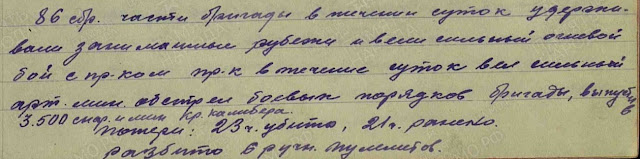 86 сбр. части бригады в течении суток удержи-
вали занимаемые рубежи и вели сильный огневой
бой с пр-ком пр-к в течение суток вел сильный
арт. мин. обстрел боевых порядков бригады, выпустив
3.500 снар. и мин кр. калибера.
Потери: 23 ч. убито, 21 ч. ранено.
разбито 6 ручн. пулеметов.